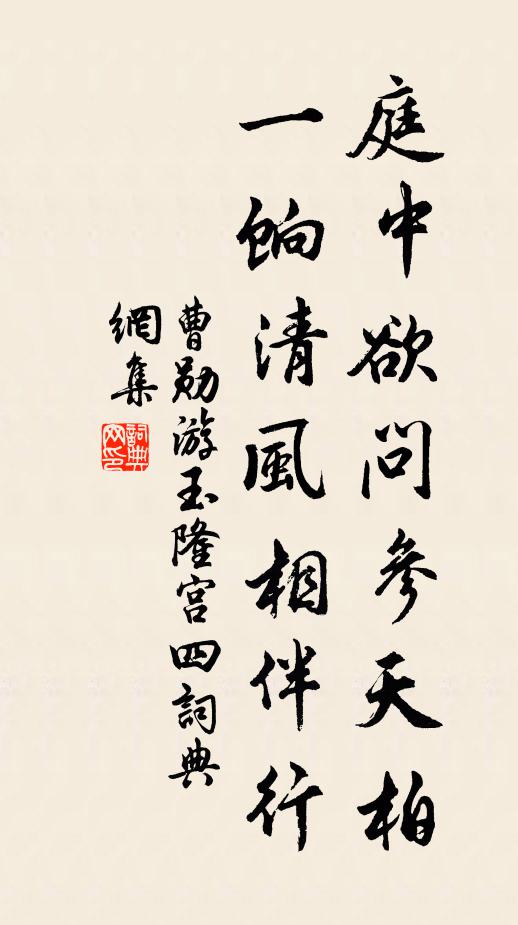 庭中欲問參天柏
一餉清風相伴行
曹勛游玉隆宮四詞典
網集
詞典
網印